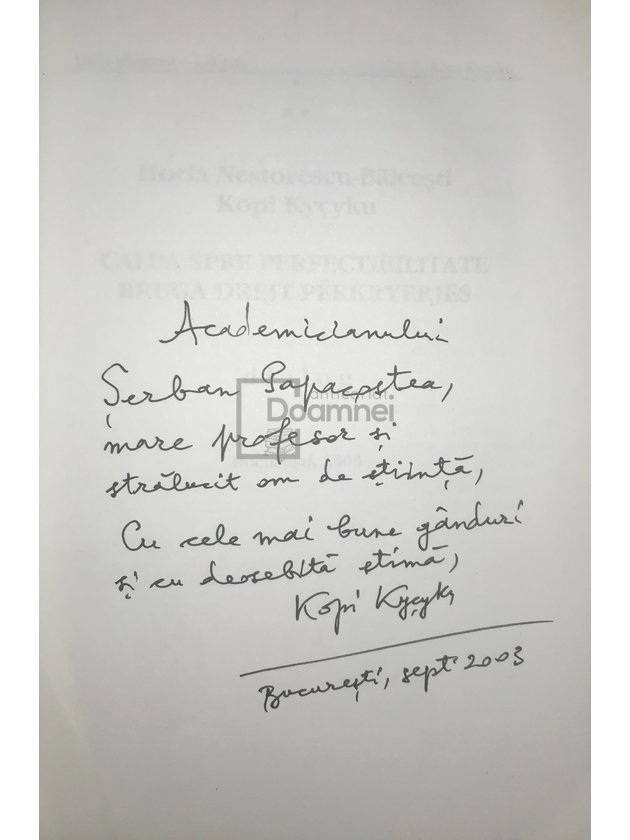 Horia Nestorescu-Bălcești
Kopi Kyçyku
CALEA SPRE PERFECTIBILITATE
RRUGA DREJT PËRKRYERJES
Academicianului
Șerban Papacostea,
mare profesor și
strălucit om de știință,
Cu cele mai bune gânduri
și cu deosebită stimă,
Kopi Kyçyku
București, sept. 2003
anticariat
Doamnei